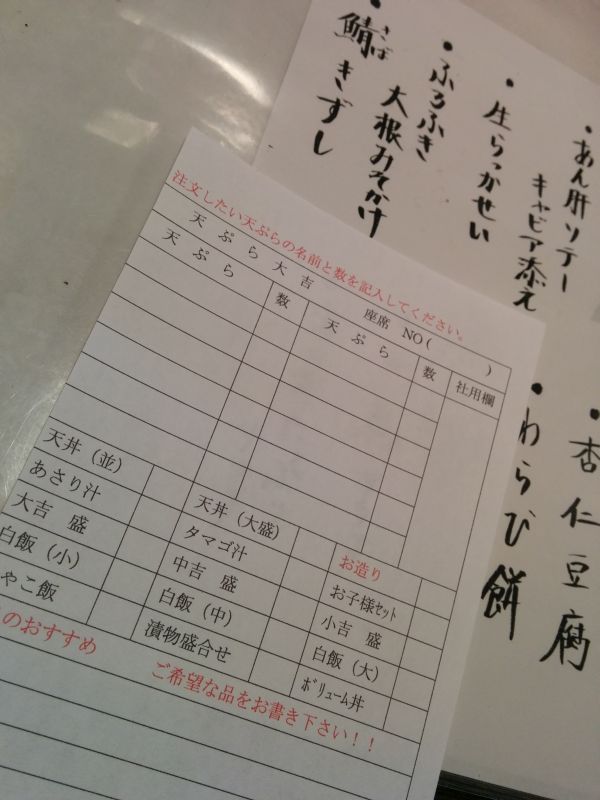 ・鯖きずし
さば
・ふろふき
大根みそかけ
・生らっかせい
・あん肝ソテー
キャビア添え
・わらび餅
・杏仁豆腐
注文したい天ぷらの名前と数を記入してください。
天ぷら大吉 座席 NO( )
天ぷら 数 天ぷら 数 社用欄
天丼（並） 天丼（大盛） お造り
あさり汁 タマゴ汁 お子様ｾｯﾄ
大吉 盛 中吉 盛 小吉 盛
白飯（小） 白飯（中） 白飯（大）
やこ飯 漬物盛合せ ﾎﾞﾘｭｰﾑ丼
のおすすめ ご希望な品をお書き下さい！！